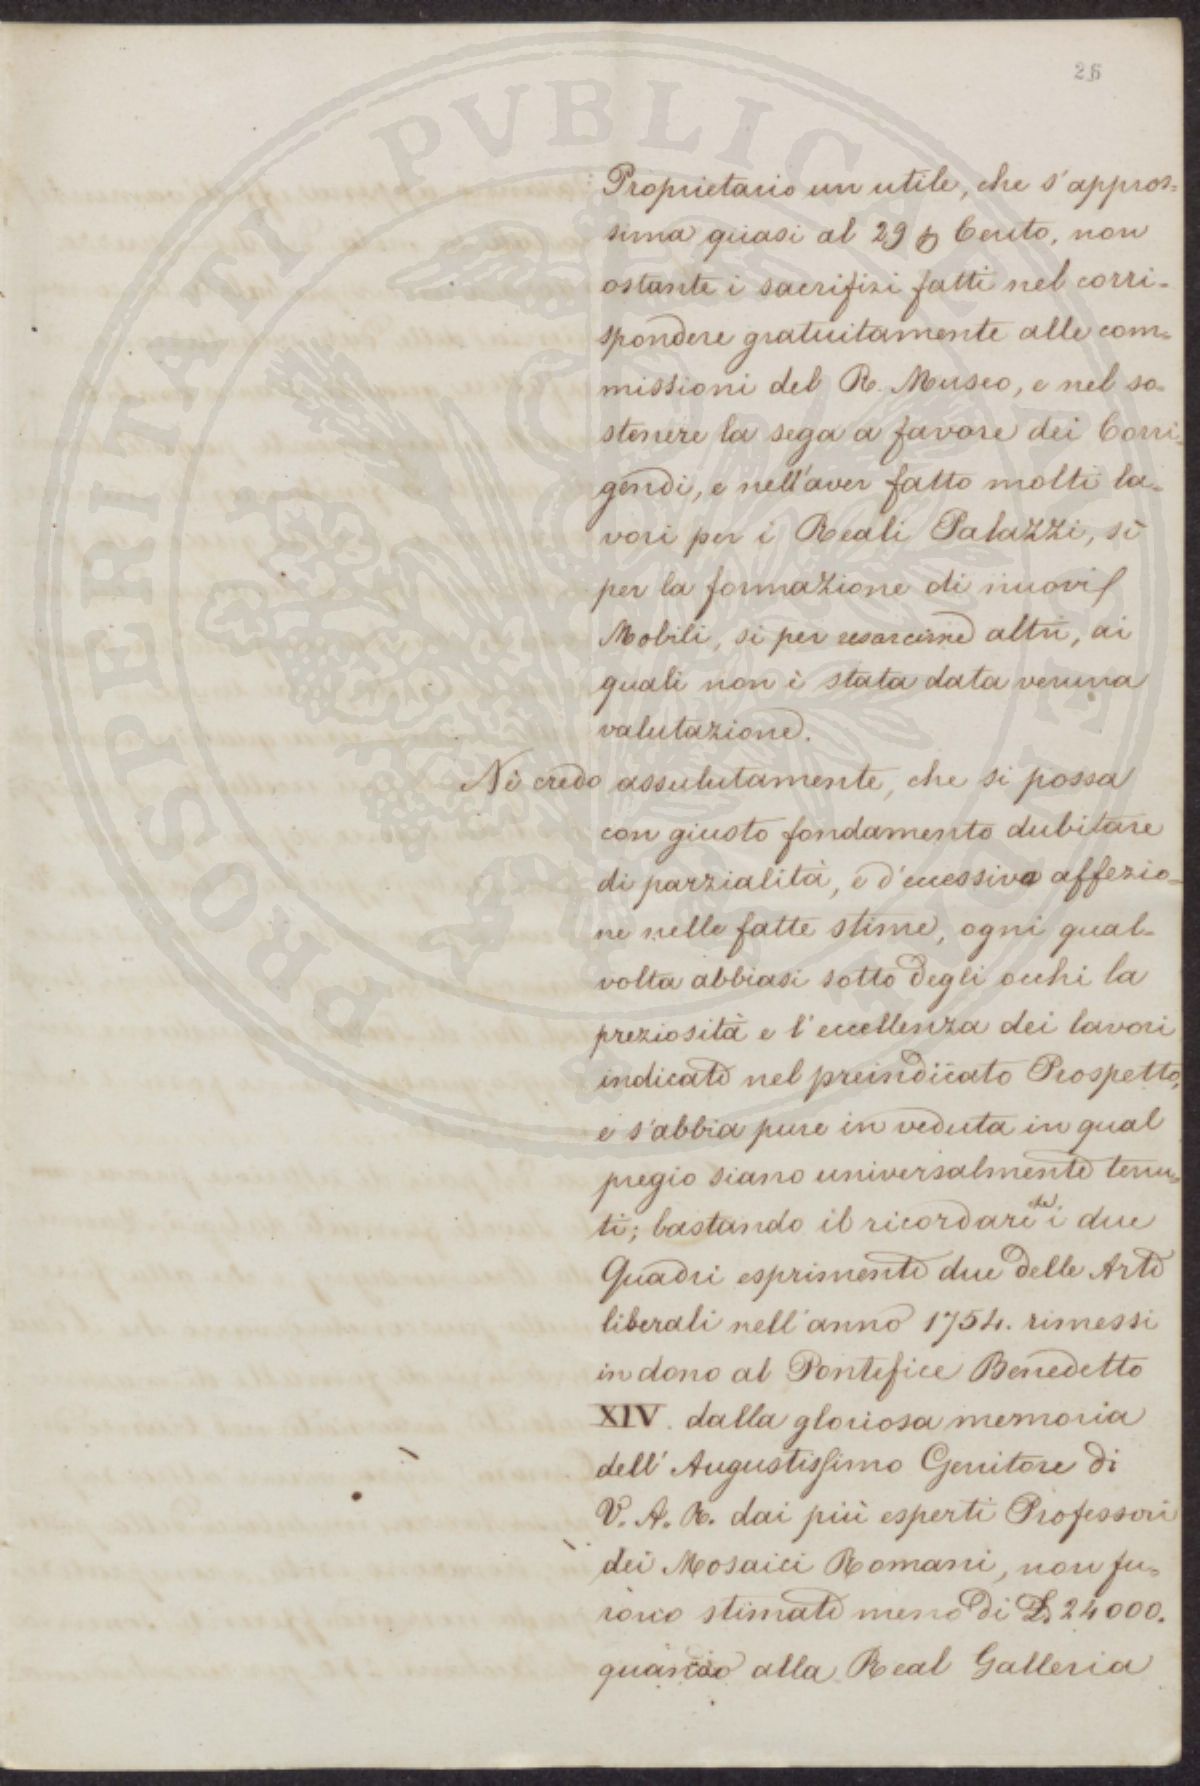 26
Proprietario un utile, che s'appros=
sima quasi al 29 p Cento, non
ostante i sacrifizi fatti nel corri-
spondere gratuitamente alle com=
missioni del R. Museo, e nel so=
stenere la sega a favore dei Corri-
gendi, e nell'aver fatto molti la-
vori per i Reali Palazzi, sì
per la formazione di nuovi
Mobili, si per resarcirne altri, ai
quali non è stata data veruna
valutazione.
Nè credo assulutamente, che si possa
con giusto fondamento dubitare
di parzialità, e d'eccessiva affezio=
ne nelle fatte stime, ogni qual-
volta abbiasi sotto degli occhi la
preziosità e l'eccellenza dei lavori
indicati nel preindicato Prospetto,
e s'abbia pure in veduta in qual
pregio siano universalmente tenu=
ti; bastando il ricordare che i due
Quadri esprimenti due delle Arti
liberali nell'anno 1754. rimessi
in dono al Pontefice Benedetto
XIV. dalla gloriosa memoria
dell'Augustissimo Genitore di
V. A. R. dai più esperti Professori
dei Mosaici Romani, non fu=
rono stimati meno di £ 24000.
quando alla Real Galleria
PROSPERITATI PVBLICAE